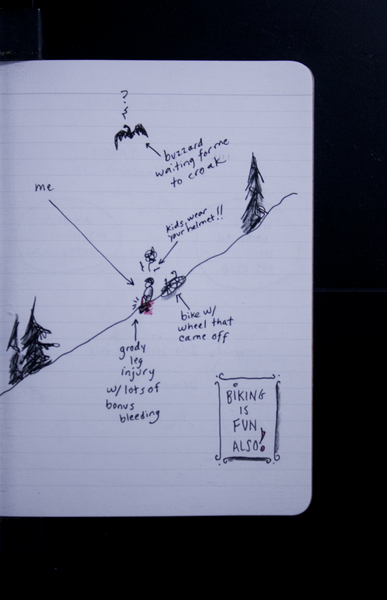 ?
buzzard
waiting for me
to croak
me
kids, wear
your helmet!!
bike w/
wheel that
came off
grody
leg
injury
w/ lots of
bonus
bleeding
BIKING
IS
FUN,
ALSO!